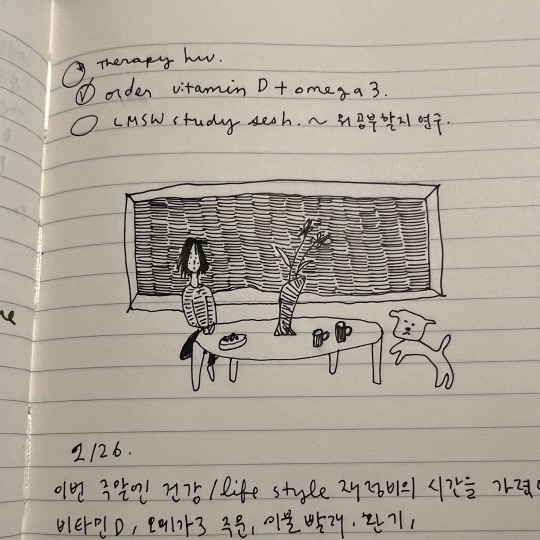 Therapy hw.
order vitamin D + omega 3.
LMSW study sesh. ~ 뭐 공부할지 연구.
2/26.
이번 주말엔 건강/life style 재정비의 시간을
비타민D, 오메가3 주문, 이불빨래. 환기,